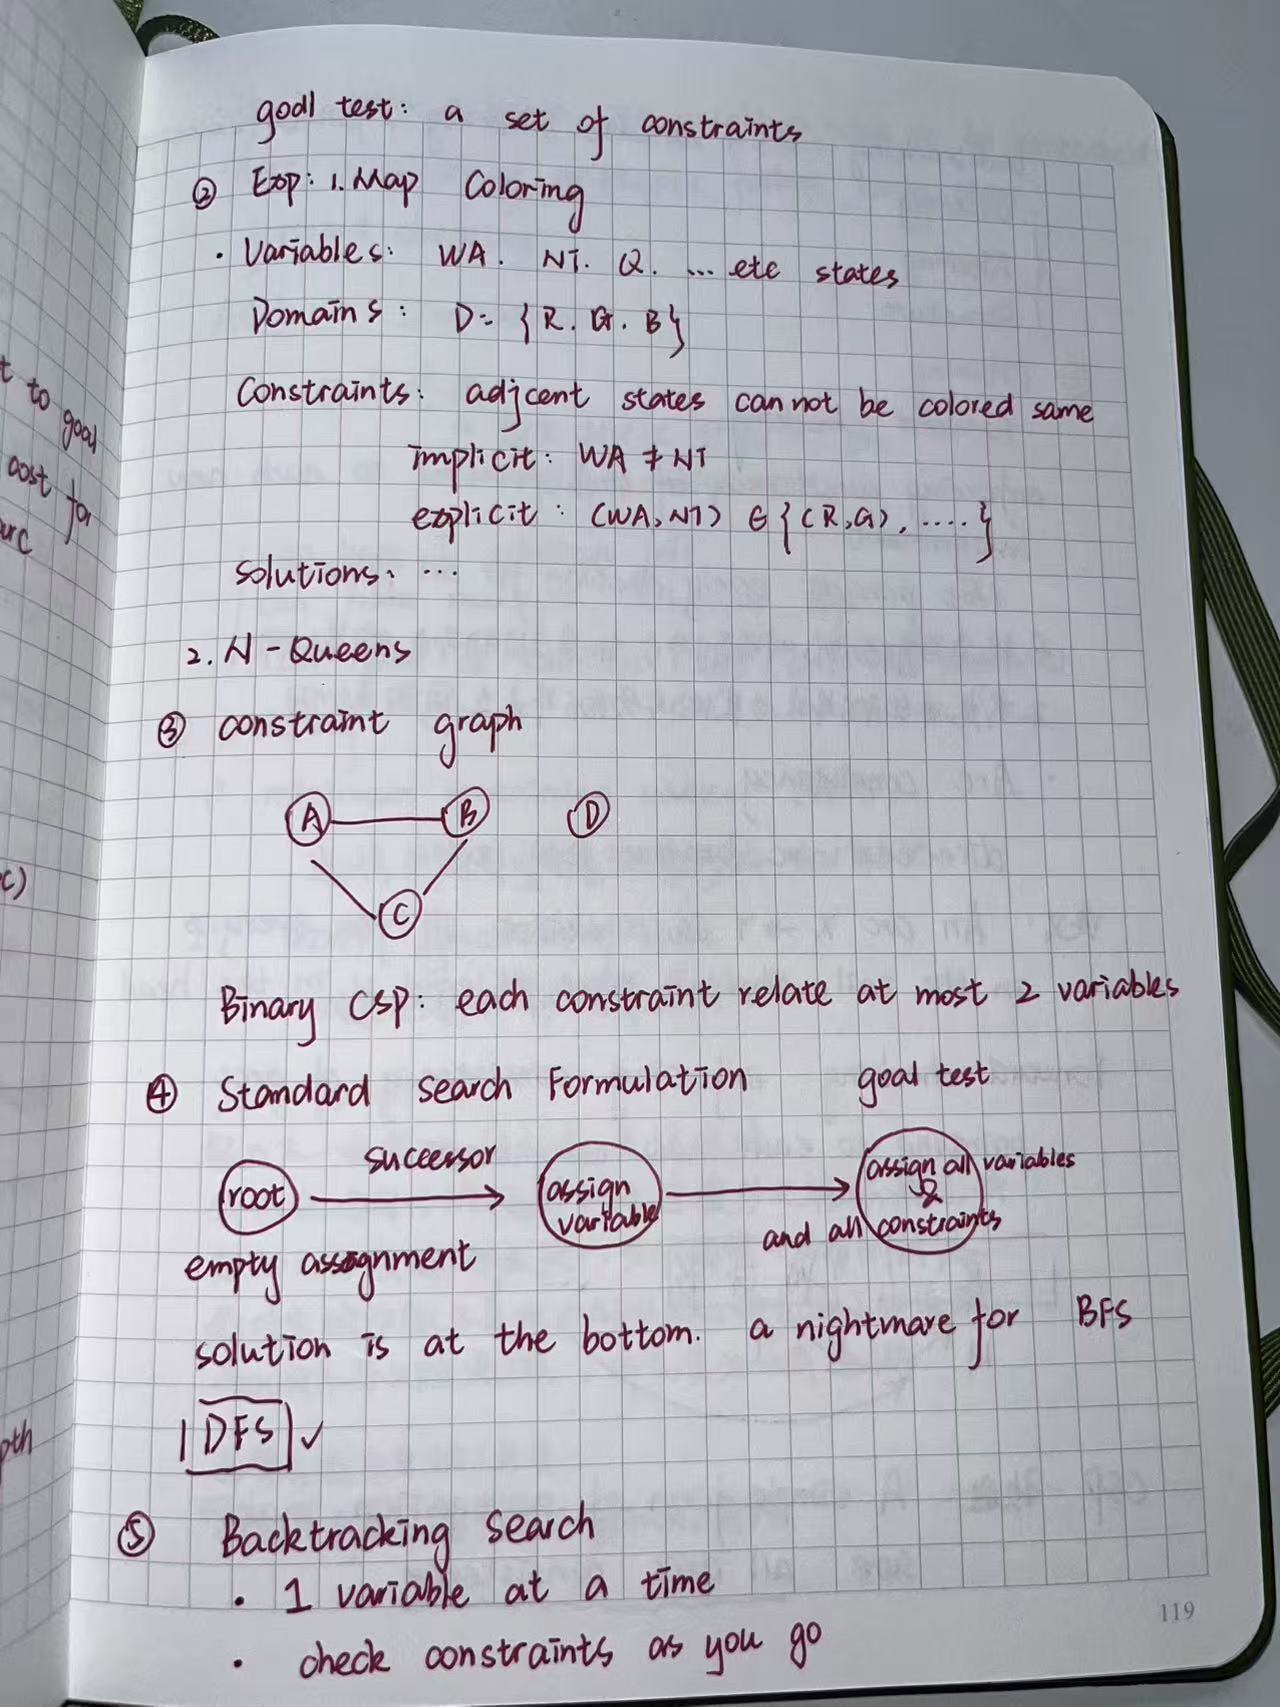 goal test: a set of constraints
② Exp: 1. Map Coloring
· Variables: WA. NT. Q. ... etc states
Domains: D= {R. G. B}
Constraints: adjcent states cannot be colored same
implicit: WA ≠ NT
explicit: (WA, NT) ∈ {(R,G), ....}
solutions: ...
2. N-Queens
③ constraint graph
A B D
C
Binary CSP: each constraint relate at most 2 variables
④ Standard search Formulation goal test
root successor assign variable assign all variables
& and all constraints
empty assignment
solution is at the bottom. a nightmare for BFS
DFS ✓
⑤ Backtracking search
· 1 variable at a time
· check constraints as you go
119
t to goal
cost for
arc
c)
pth